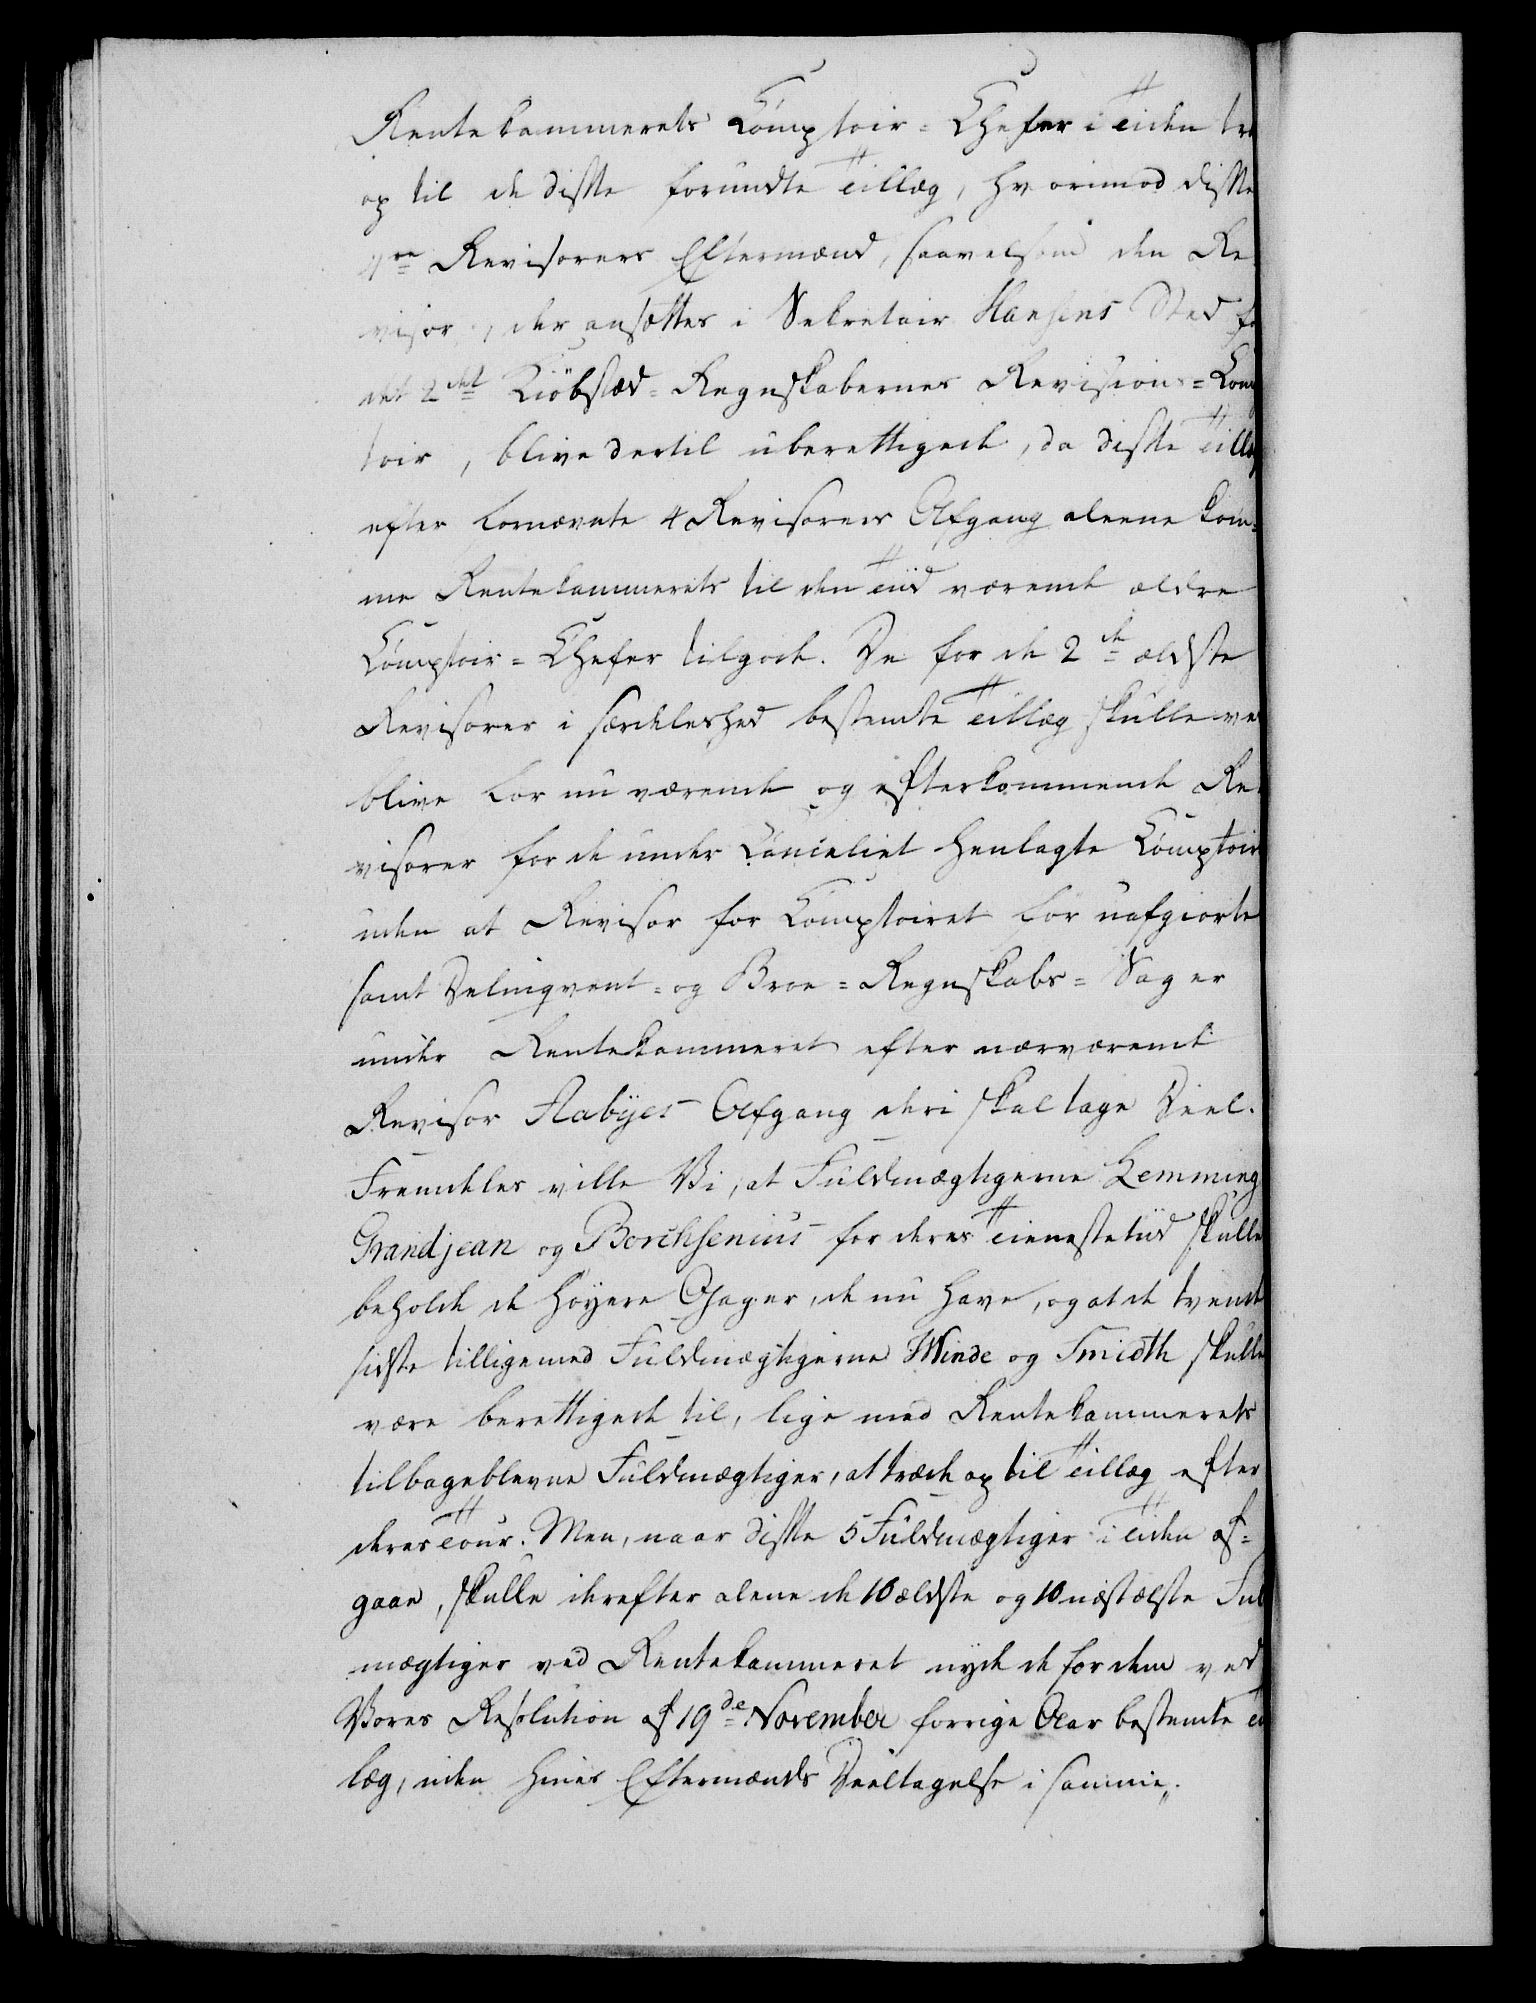 Rentekammerets Comptoir-Chefer i Tiden træ
op til de disse forundte Tillæg, hvorimod disse
4re Revisorers Eftermænd, saavelsom den Re
visor, der ansættes i Sekretair Hansens Sted f
det 2det Kiöbstæd-Regnskabernes Revisions-Com
toir, blive dertil uberettigede, da disse Tillæ
efter fornævnte 4 Revisorers Afgang aleene kom-
me Rentekammerets til den Tiid værende ældre
Comptoir-Chefer tilgode. De for de 2de ældste
Revisorer i særdeleshed bestemte Tillæg skulle ved
blive for nu værende og efterkommende Re
visorer for de under Cancelliet henlagte Comptoir
uden at Revisor for Comptoiret for uafgiorte
samt Delinqvent- og Broe-Regnskabs-Sager
under Rentekammeret efter nærværende
Revisor Aabyes Afgang deri skal tage Deel.
Fremdeles ville Vi, at Fuldmægtigerne Lemming
Grandjean og Borchsenius for deres Tienestetiid skulle
beholde de høyere Gager, de nu have, og at de tvende
sidste tilligemed Fuldmægtigerne Winde og Smidth skulle
være berettigede til, lige med Rentekammerets
tilbageblevne Fuldmægtiger, at træde op til Tillæg efter
deres Tour. Men, naar disse 5 Fuldmægtiger i Tiden af-
gaae, skulle derefter alene de 10 ældste og 10 næstælste Ful
mægtiger ved Rentekammeret nyde de for dem ved
Vores Resolution af 19de November forrige Aar bestemte Til
læg, uden hines Eftermænds Deeltagelse i samme.